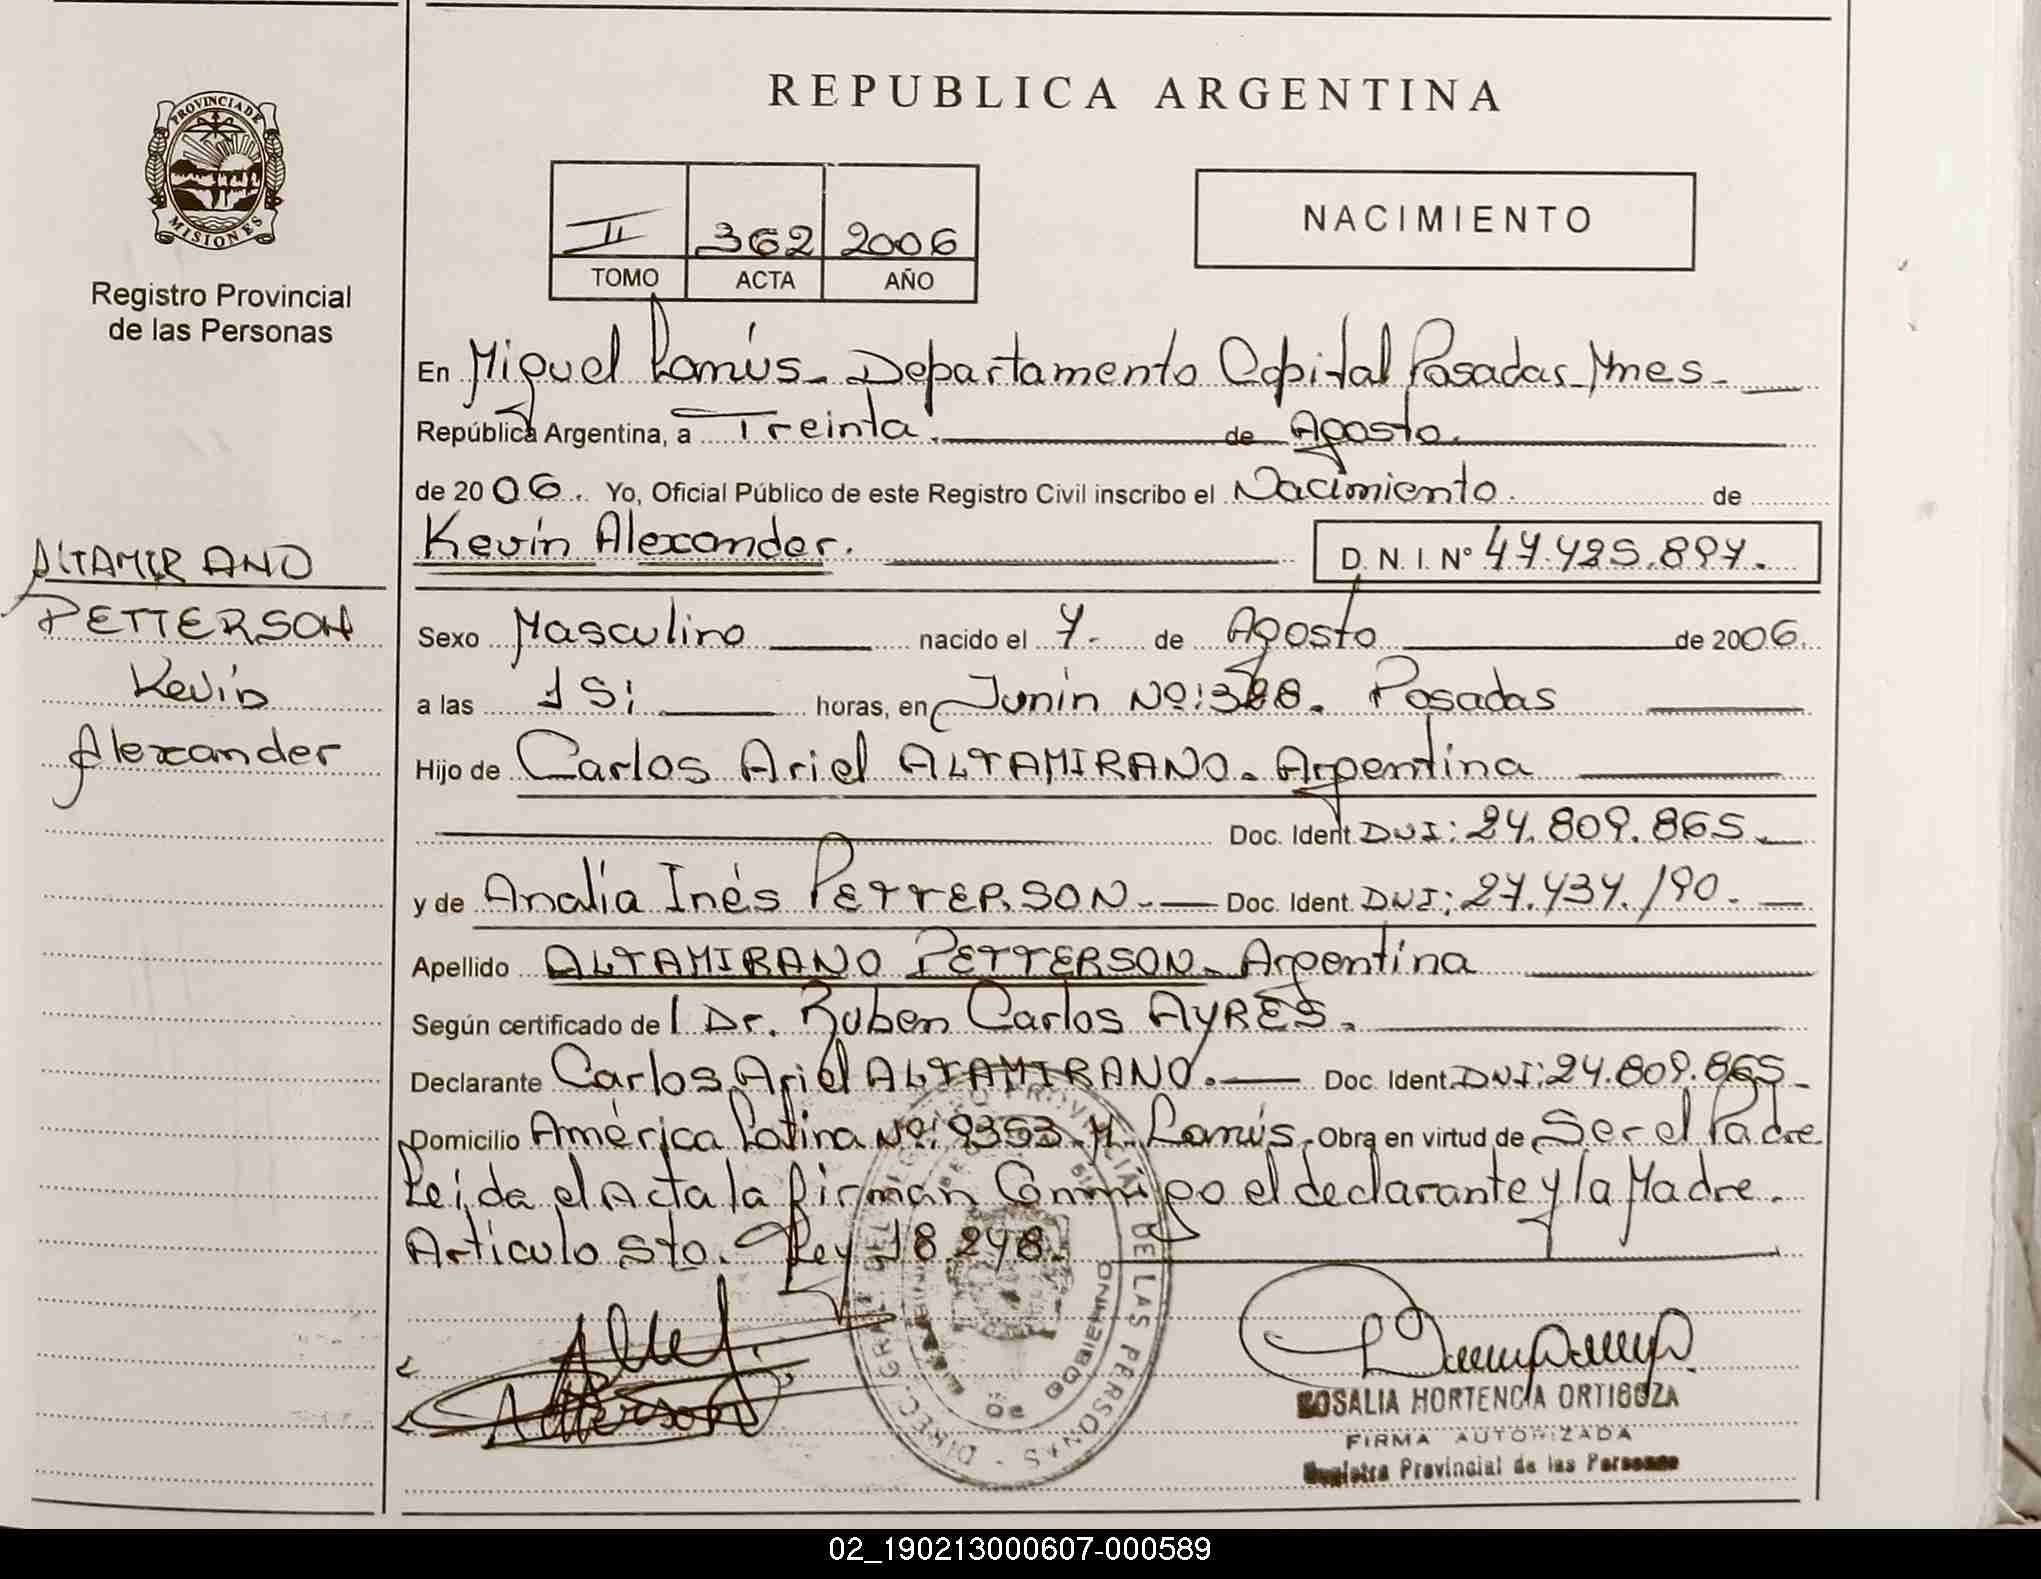 REPUBLICA ARGENTINA
PROVINCIA DE
MISIONES
Registro Provincial
de las Personas
II 362 2006
TOMO ACTA AÑO
NACIMIENTO
En Miguel Lanús - Departamento Capital Posadas Mnes -
República Argentina, a Treinta. de Agosto.
de 2006. Yo, Oficial Público de este Registro Civil inscribo el Nacimiento. de
Kevin Alexander. D. N. I. Nº 47.425.897.
ALTAMIRANO
PETTERSON
Kevin
Alexander
Sexo Masculino nacido el 7. de Agosto de 2006.
a las 15; horas, en Junin Nº: Posadas
Hijo de Carlos Ariel ALTAMIRANO. Argentina
Doc. Ident. DNI: 24.809.865.
y de Analía Inés PETTERSON. Doc. Ident. DNI: 27.437.190.
Apellido ALTAMIRANO PETTERSON. Argentina
Según certificado del Dr. Ruben Carlos AYRES.
Declarante Carlos Ariel ALTAMIRANO. Doc. Ident. DNI: 24.809.865
Domicilio América Latina Nº: 9353. M. Lanús. Obra en virtud de Ser el Padre
Leída el Acta la firman Conmigo el declarante y la Madre.
Artículo 5to. Ley 18.248.
DIREC. GRAL. DEL REGISTRO PROVINCIAL DE LAS PERSONAS
DE GOBIERNO
ROSALIA HORTENCIA ORTIGOZA
FIRMA AUTORIZADA
Registro Provincial de las Personas
02_190213000607-000589